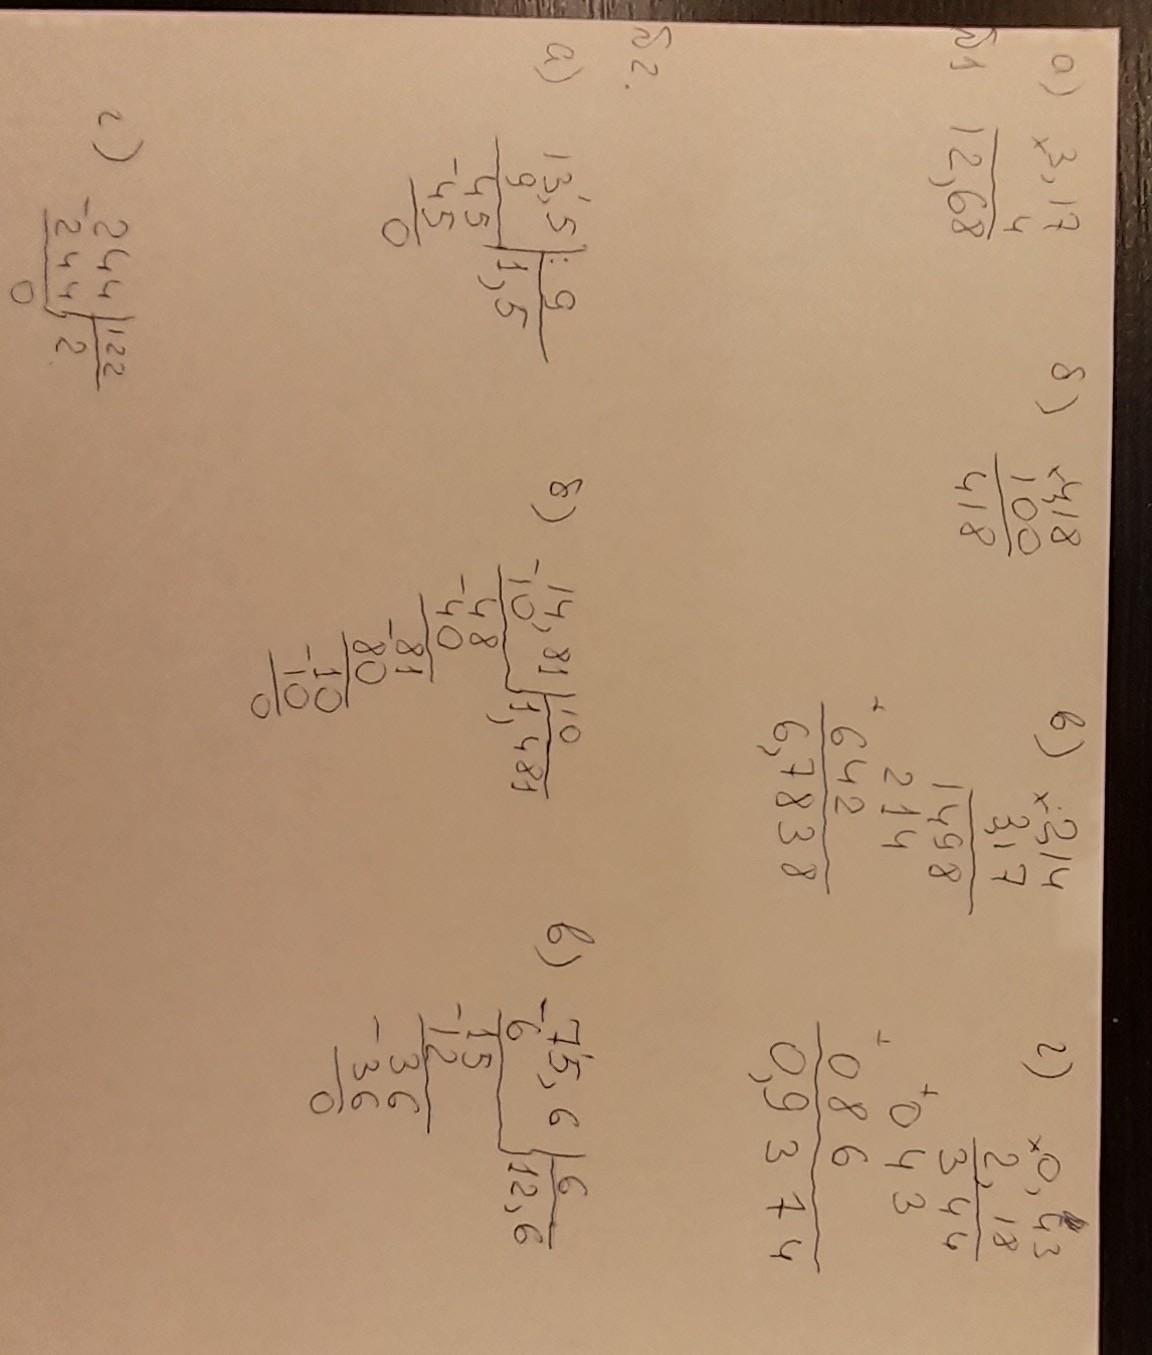 №1
а) × 3,17
4
12,68
б) × 4,18
100
418
в) × 2,14
3,17
1498
214
+ 642
6,7838
г) × 0,43
2,18
344
+ 043
+ 086
0,9374
№2.
а) 13,5 : 9
9 1,5
- 45
45
0
б) - 14,81 10
10 1,481
- 48
40
- 81
80
- 10
10
0
в) - 75,6 6
6 12,6
- 15
12
- 36
36
0
г) - 244 122
244 2
0